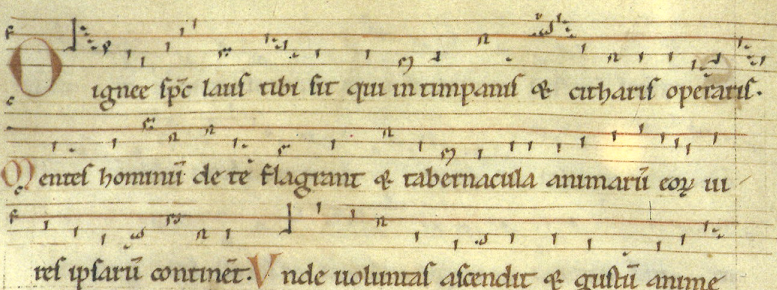 O ignee sp̄c laus tibi sit qui in timpanis & citharis operaris.
Mentes hominū de te flagrant & tabernacula animarū eoꝝ ui
res ipsarū continēt. Vnde uoluntas ascendit & gustū anime